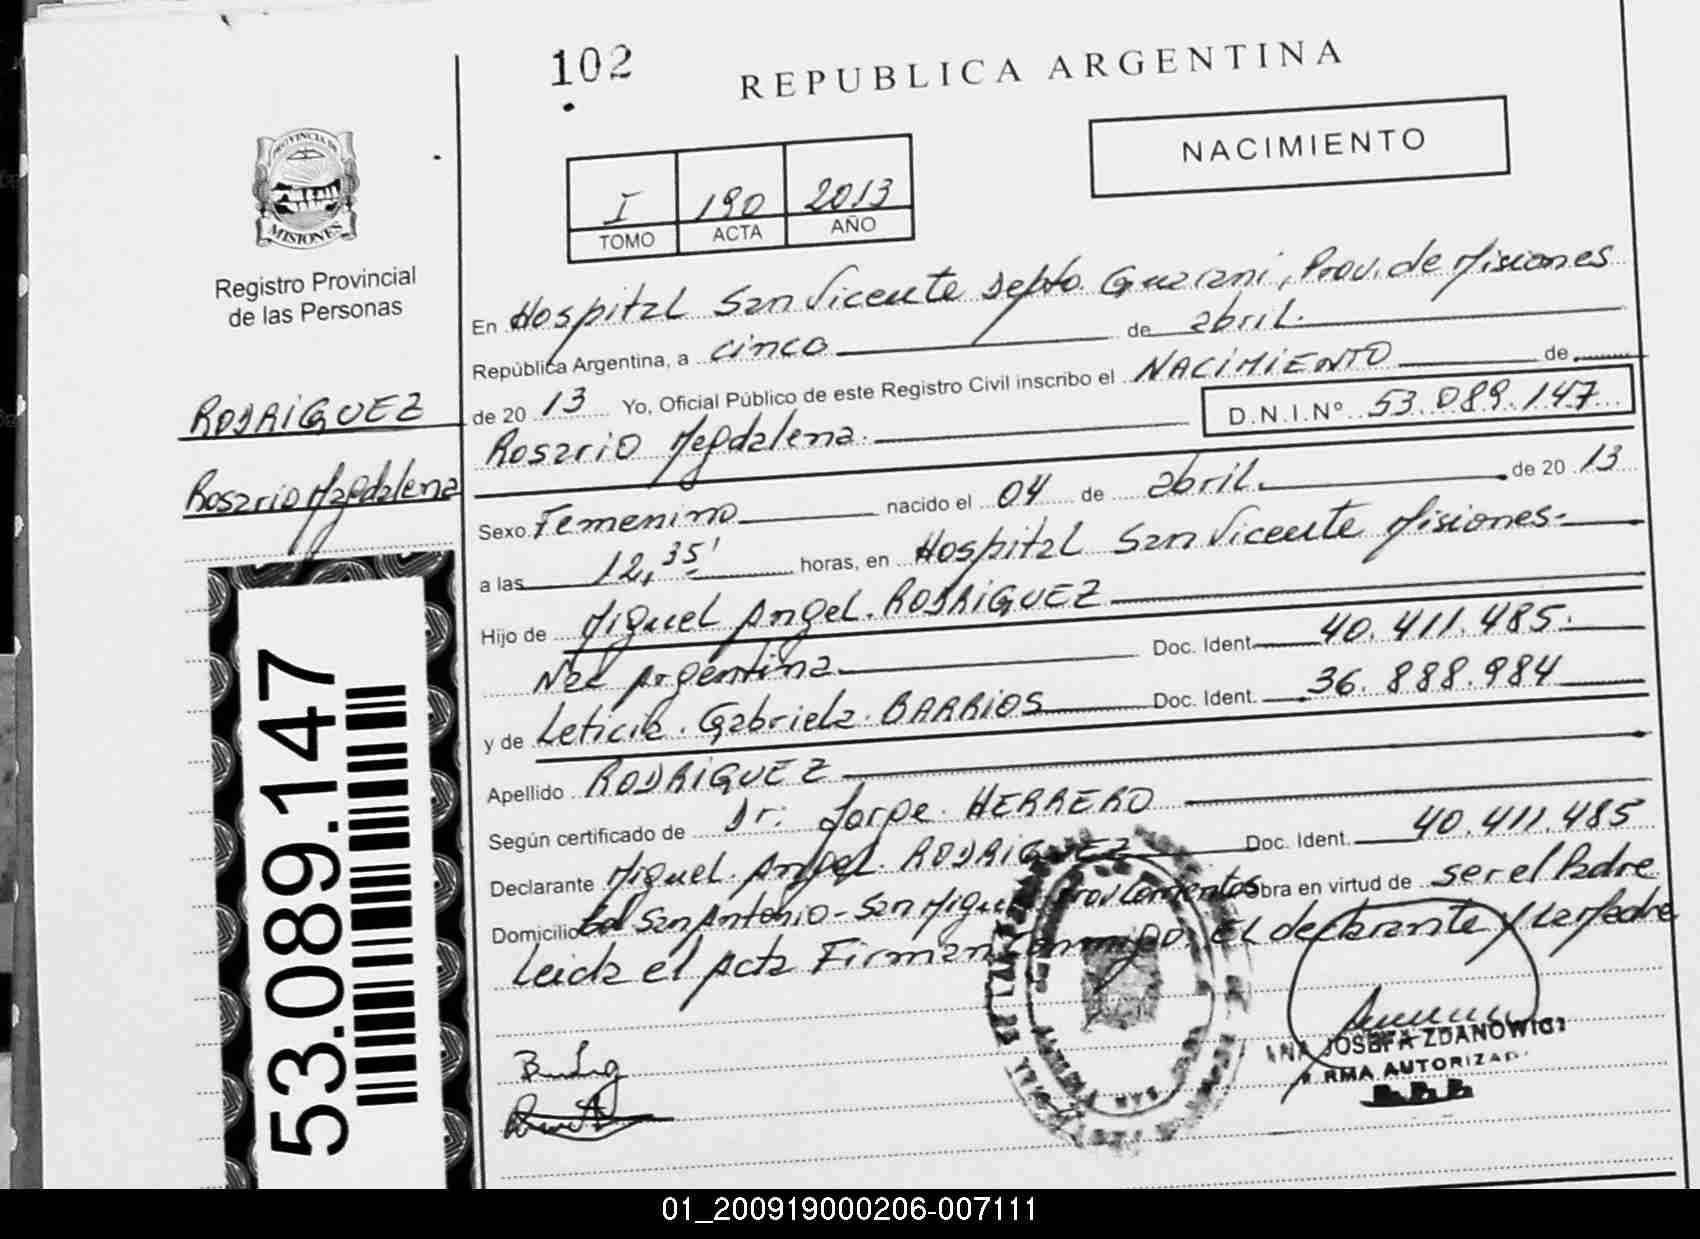 102
REPUBLICA ARGENTINA
NACIMIENTO
PROVINCIA DE
MISIONES
Registro Provincial
de las Personas
I 190 2013
TOMO ACTA AÑO
En Hospital San Vicente Depto. Guarani, Prov. de Misiones
República Argentina, a cinco de abril.
de 20 13 Yo, Oficial Público de este Registro Civil inscribo el NACIMIENTO de
D.N.I.Nº 53.089.147
RODRIGUEZ
Rosario Magdalena
Rosario Magdalena.
Sexo Femenino nacido el 04 de abril. de 20 13
a las 12,35' horas, en Hospital San Vicente Misiones.
Hijo de Miguel Angel. RODRIGUEZ
Nac Argentina. Doc. Ident. 40.411.485.
y de Leticia. Gabriela. BARRIOS Doc. Ident. 36.888.984
Apellido RODRIGUEZ
Según certificado de Dr. Jorge. HERRERO
Declarante Miguel. Angel. RODRIGUEZ Doc. Ident. 40.411.485
Domicilio San Antonio - San Miguel Prov Corrientes Obra en virtud de ser el Padre
Leida el Acta Firman Conmigo. El declarante y La Madre
53.089.147
JOSEFA ZDANOWICZ
AUTORIZAD
01_200919000206-007111